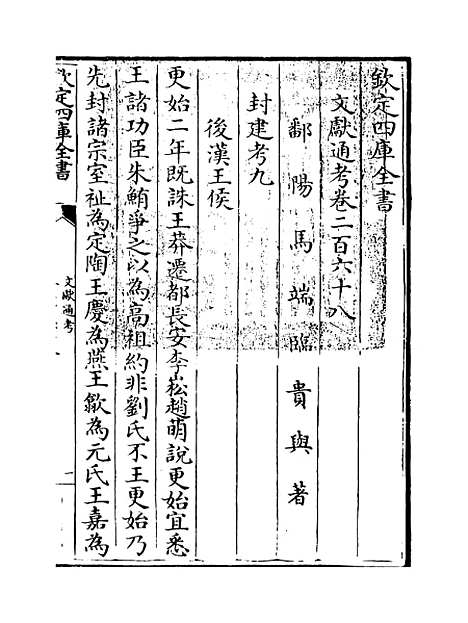 欽定四庫全書
文獻通考卷二百六十八
鄱陽馬端臨貴與著
封建考九
後漢王侯
更始二年既誅王莽遷都長安李崧趙萌說更始宜悉
王諸功臣朱鮪爭之以為高祖約非劉氏不王更始乃
先封諸宗室祉為定陶王慶為燕王歙為元氏王嘉為
欽定四庫全書
文獻通考
一